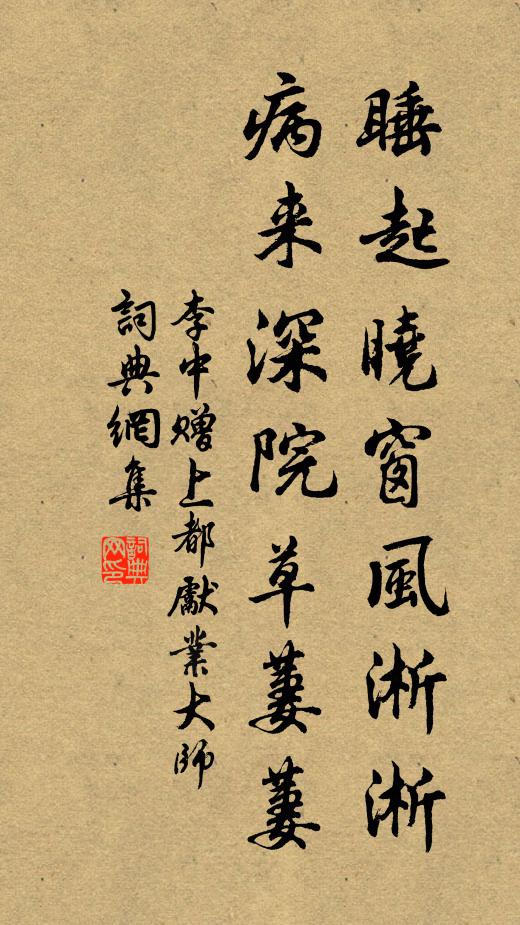 睡起曉窗風淅淅
病来深院草萋萋
李中贈上都獻業大師
詞典網集
詞典网印